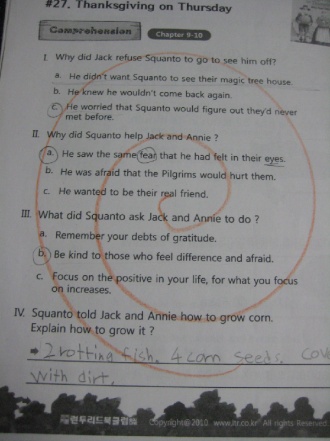 #27. Thanksgiving on Thursday
Comprehension Chapter 9-10
I. Why did Jack refuse Squanto to go to see him off?
a. He didn't want Squanto to see their magic tree house.
b. He knew he wouldn't come back again.
c. He worried that Squanto would figure out they'd never
met before.
II. Why did Squanto help Jack and Annie ?
a. He saw the same fear that he had felt in their eyes.
b. He was afraid that the Pilgrims would hurt them.
c. He wanted to be their real friend.
III. What did Squanto ask Jack and Annie to do ?
a. Remember your debts of gratitude.
b. Be kind to those who feel difference and afraid.
c. Focus on the positive in your life, for what you focus
on increases.
IV. Squanto told Jack and Annie how to grow corn.
Explain how to grow it ?
→ 2 rotting fish. 4 corn seeds. cov
with dirt.
Copyright©2010. www.ltr.co.kr All rights Reserved